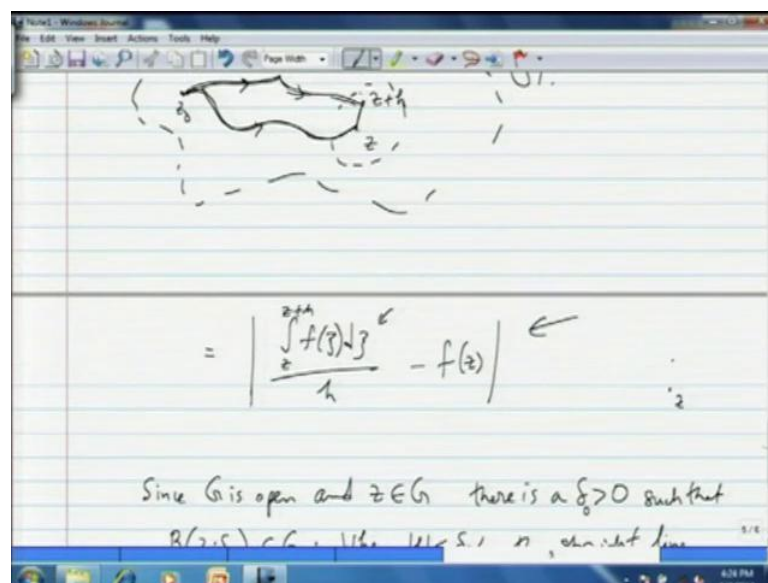 Note1 - Windows Journal
File Edit View Insert Actions Tools Help
Page Width
z₀ z+h
z
= | ∫_z^{z+h} f(ζ)dζ / h - f(z) |
z
Since G is open and z ∈ G there is a δ₀>0 such that
straight line
5/6
4:24 PM